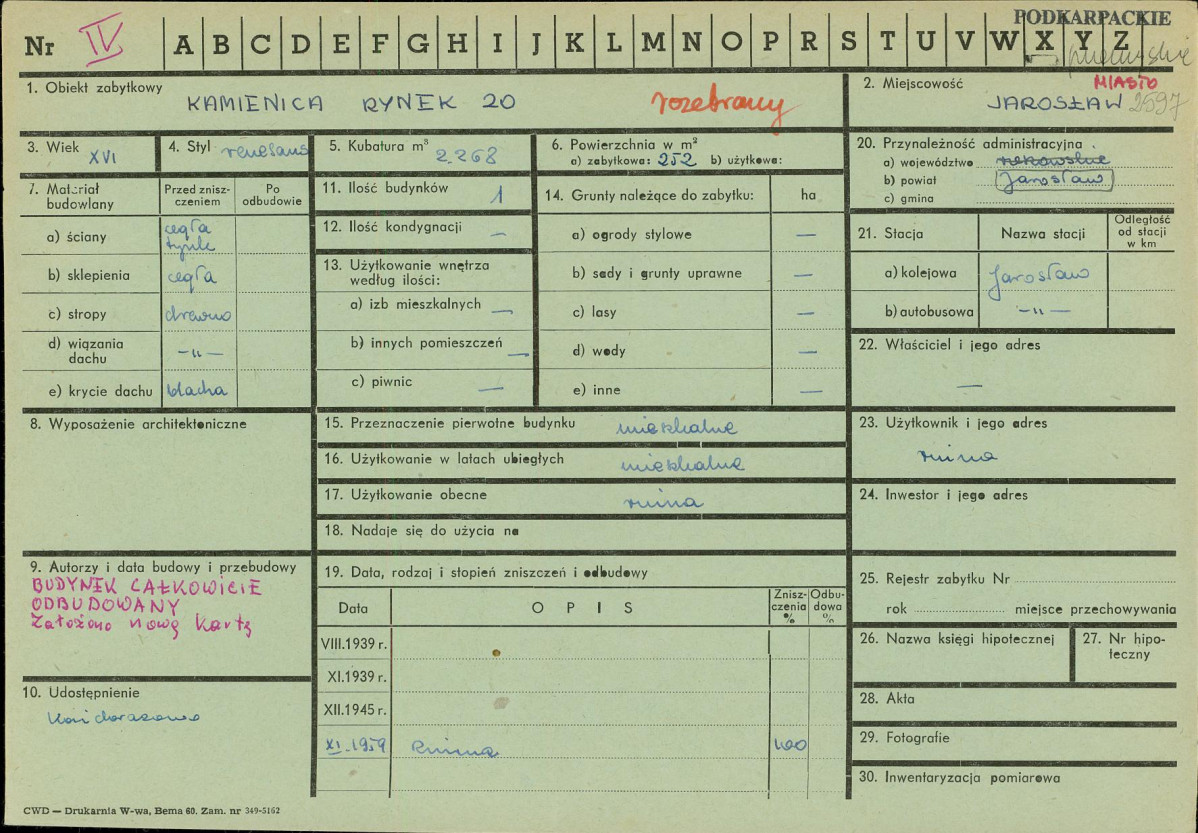 PODKARPACKIE
Nr IV A B C D E F G H I J K L M N O P R S T U V W X Y Z
przemyskie
1. Obiekt zabytkowy
KAMIENICA RYNEK 20
rozebrany
2. Miejscowość
MIASTO
JAROSŁAW 2597
3. Wiek XVI
4. Styl renesans
5. Kubatura m³ 2.268
6. Powierzchnia w m²
a) zabytkowa: 252 b) użytkowa:
20. Przynależność administracyjna
a) województwo rzeszowskie
b) powiat Jarosław
c) gmina
7. Materiał budowlany
Przed zniszczeniem
Po odbudowie
a) ściany cegła tynk
b) sklepienia cegła
c) stropy drewno
d) wiązania dachu —"—
e) krycie dachu blacha
11. Ilość budynków 1
12. Ilość kondygnacji —
13. Użytkowanie wnętrza według ilości:
a) izb mieszkalnych —
b) innych pomieszczeń —
c) piwnic —
14. Grunty należące do zabytku: ha
a) ogrody stylowe —
b) sady i grunty uprawne —
c) lasy —
d) wody —
e) inne —
21. Stacja Nazwa stacji Odległość od stacji w km
a) kolejowa Jarosław
b) autobusowa —"—
22. Właściciel i jego adres
—
8. Wyposażenie architektoniczne
15. Przeznaczenie pierwotne budynku mieszkalne
16. Użytkowanie w latach ubiegłych mieszkalne
17. Użytkowanie obecne ruina
18. Nadaje się do użycia na
23. Użytkownik i jego adres
ruina
24. Inwestor i jego adres
9. Autorzy i data budowy i przebudowy
BUDYNEK CAŁKOWICIE
ODBUDOWANY
Założono nową kartę
10. Udostępnienie
19. Data, rodzaj i stopień zniszczeń i odbudowy
Data OPIS Zniszczenia % Odbudowa %
VIII.1939 r.
XI.1939 r.
XII.1945 r.
XI.1959 Ruina 100
25. Rejestr zabytku Nr
rok miejsce przechowywania
26. Nazwa księgi hipotecznej
27. Nr hipoteczny
28. Akta
29. Fotografie
30. Inwentaryzacja pomiarowa
CWD — Drukarnia W-wa, Bema 60. Zam. nr 349-5162